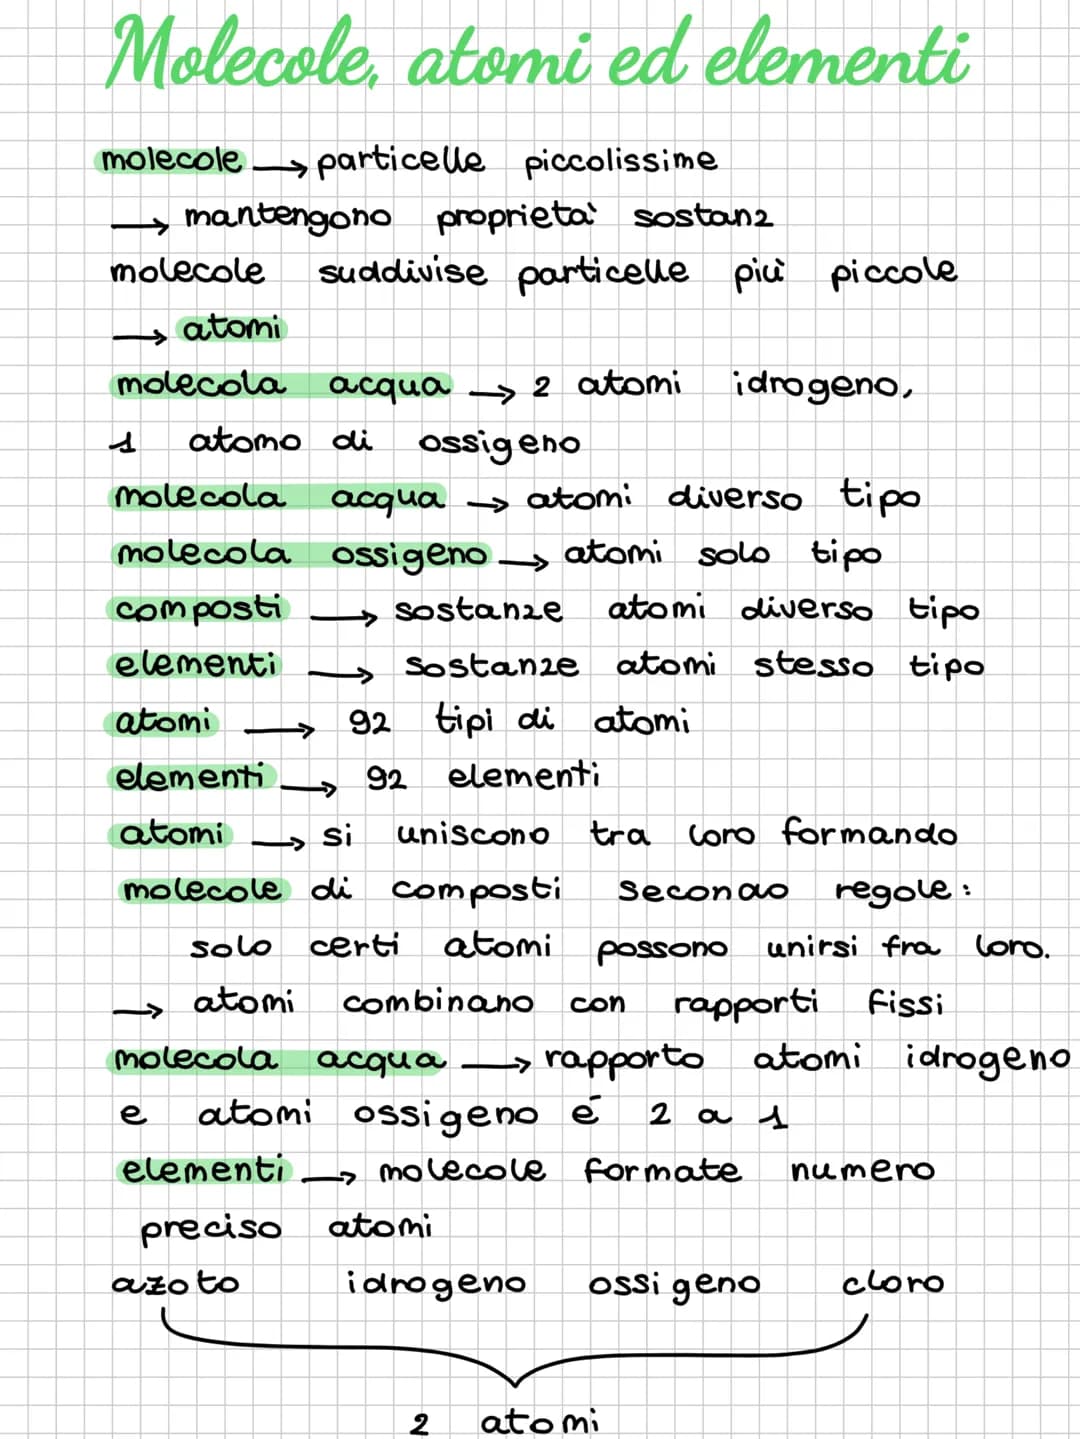 Molecole, atomi ed elementi
molecole → particelle piccolissime
→ mantengono proprietà sostanz
molecole suddivise particelle più piccole
→ atomi
molecola acqua → 2 atomi idrogeno,
1 atomo di ossigeno
molecola acqua → atomi diverso tipo
molecola ossigeno → atomi solo tipo
composti → sostanze atomi diverso tipo
elementi → sostanze atomi stesso tipo
atomi → 92 tipi di atomi
elementi → 92 elementi
atomi → si uniscono tra loro formando
molecole di composti secondo regole:
solo certi atomi possono unirsi fra loro.
→ atomi combinano con rapporti fissi
molecola acqua → rapporto atomi idrogeno
e atomi ossigeno é 2 a 1
elementi → molecole formate numero
preciso atomi
azoto idrogeno ossigeno cloro
2 atomi